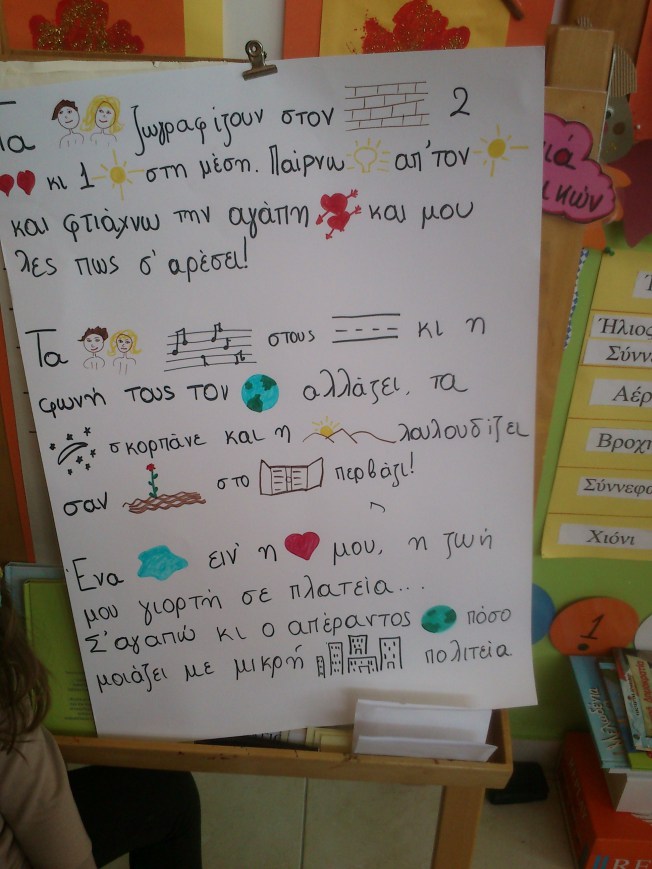 Τα ζωγραφίζουν στον 2
κι 1 στη μέση. Παίρνω απ' τον
και φτιάχνω την αγάπη και μου
λες πως σ' αρέσει!
Τα στους κι η
φωνή τους τον αλλάζει, τα
σκορπάνε και η λουλουδίζει
σαν στο περβάζι!
Ένα ειν' η μου, η ζωή
μου γιορτή σε πλατεία...
Σ' αγαπώ κι ο απέραντος πόσο
μοιάζει με μικρή πολιτεία
Ήλιος
Σύννε
Αέρ
Βροχή
Σύννεφο
Χιόνι
1